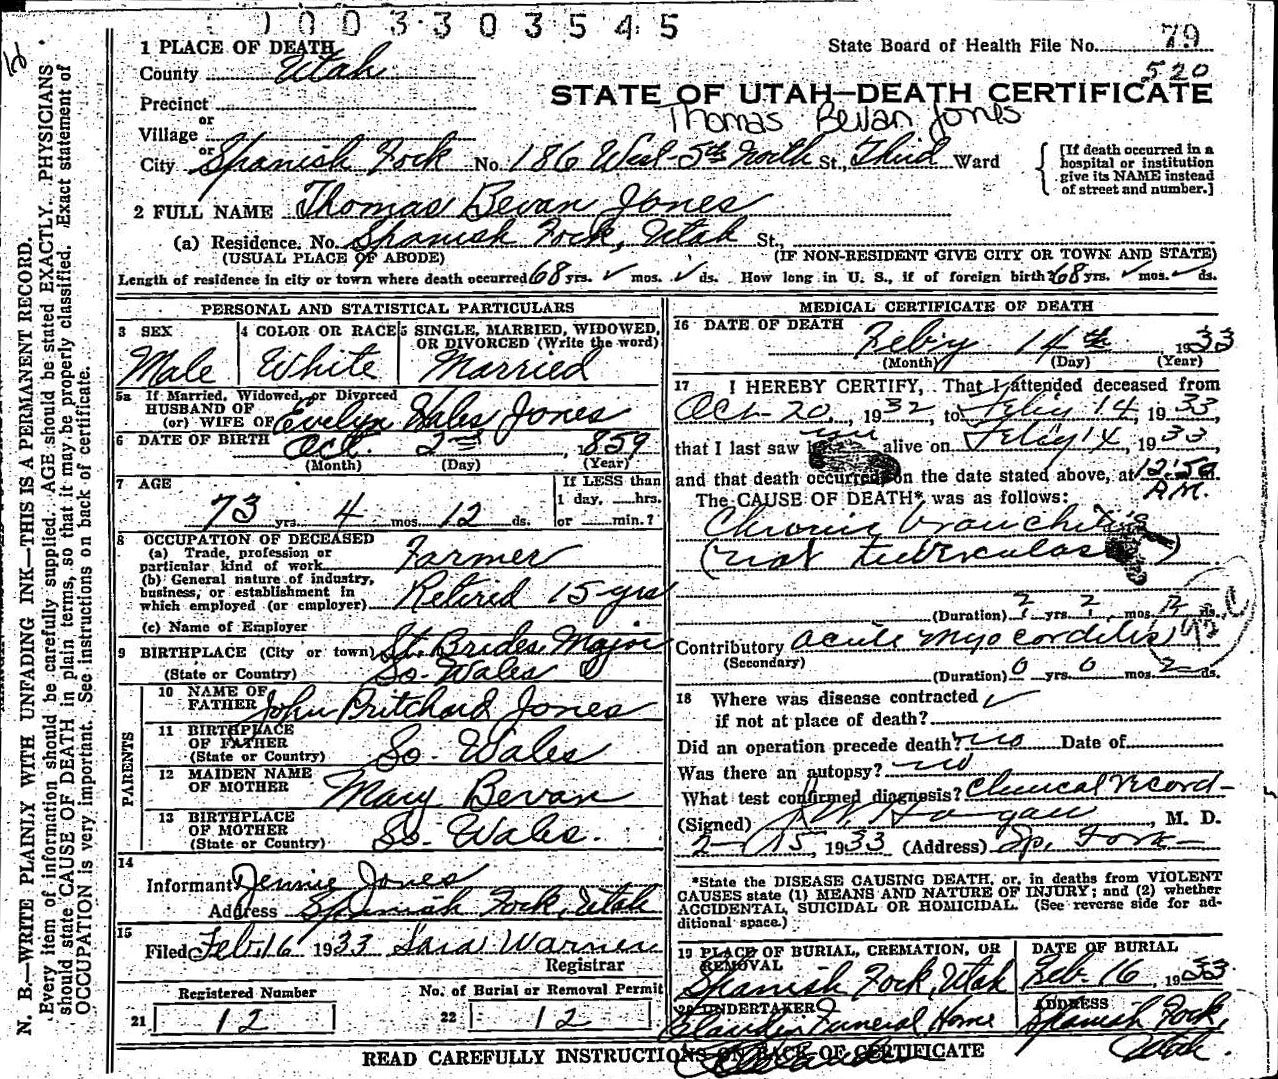 1003303545
1 PLACE OF DEATH
State Board of Health File No. 79
County Utah
520
STATE OF UTAH—DEATH CERTIFICATE
Precinct
or
Thomas Bevan Jones
Village
or
City Spanish Fork No. 186 West 5th North St., Third Ward
[If death occurred in a hospital or institution give its NAME instead of street and number.]
2 FULL NAME Thomas Bevan Jones
(a) Residence. No. Spanish Fork, Utah St.,
(USUAL PLACE OF ABODE) (IF NON-RESIDENT GIVE CITY OR TOWN AND STATE)
Length of residence in city or town where death occurred 68 yrs. ✓ mos. ✓ ds. How long in U. S., if of foreign birth? 68 yrs. ✓ mos. ✓ ds.
PERSONAL AND STATISTICAL PARTICULARS
3 SEX
Male
4 COLOR OR RACE
White
5 SINGLE, MARRIED, WIDOWED, OR DIVORCED (Write the word)
Married
5a If Married, Widowed, or Divorced
HUSBAND OF
(or) WIFE OF Evelyn Hales Jones
6 DATE OF BIRTH
Oct. 2nd, 1859
(Month) (Day) (Year)
7 AGE
If LESS than
1 day, ....hrs.
73 yrs. 4 mos. 12 ds. or ......min.?
8 OCCUPATION OF DECEASED
(a) Trade, profession or
particular kind of work Farmer
(b) General nature of industry,
business, or establishment in
which employed (or employer) Retired 15 yrs
(c) Name of Employer
9 BIRTHPLACE (City or town) St. Brides Major
(State or Country) So. Wales
PARENTS
10 NAME OF
FATHER John Pritchard Jones
11 BIRTHPLACE
OF FATHER
(State or Country) So. Wales
12 MAIDEN NAME
OF MOTHER Mary Bevan
13 BIRTHPLACE
OF MOTHER
(State or Country) So. Wales.
14
Informant Jennie Jones
Address Spanish Fork, Utah
15
Filed Feb 16 1933 Sara Warner
Registrar
Registered Number
21 12
No. of Burial or Removal Permit
22 12
MEDICAL CERTIFICATE OF DEATH
16 DATE OF DEATH
Feby 14th 1933
(Month) (Day) (Year)
17 I HEREBY CERTIFY, That I attended deceased from
Oct-20, 1932, to Feby 14, 1933,
that I last saw him alive on Feby 14, 1933,
and that death occurred on the date stated above, at 12:50
A.M.
The CAUSE OF DEATH* was as follows:
Chronic bronchitis
(not tuberculas)
(Duration) 2 yrs. 2 mos. 12 ds.
Contributory acute myocarditis
(Secondary)
(Duration) 0 yrs. 0 mos. 2 ds.
18 Where was disease contracted
if not at place of death? ✓
Did an operation precede death? no Date of
Was there an autopsy? no
What test confirmed diagnosis? Clinical record
(Signed) Hagan, M. D.
2-15, 1933 (Address) Sp. Fork
*State the DISEASE CAUSING DEATH, or, in deaths from VIOLENT
CAUSES state (1) MEANS AND NATURE OF INJURY; and (2) whether
ACCIDENTAL, SUICIDAL OR HOMICIDAL. (See reverse side for ad-
ditional space.)
19 PLACE OF BURIAL, CREMATION, OR
REMOVAL
Spanish Fork, Utah
DATE OF BURIAL
Feb. 16, 1933
20 UNDERTAKER
Claudin Funeral Home
ADDRESS
Spanish Fork,
Utah.
READ CAREFULLY INSTRUCTIONS ON BACK OF CERTIFICATE
N. B.—WRITE PLAINLY WITH UNFADING INK—THIS IS A PERMANENT RECORD.
Every item of information should be carefully supplied. AGE should be stated EXACTLY. PHYSICIANS
should state CAUSE OF DEATH in plain terms, so that it may be properly classified. Exact statement of
OCCUPATION is very important. See instructions on back of certificate.